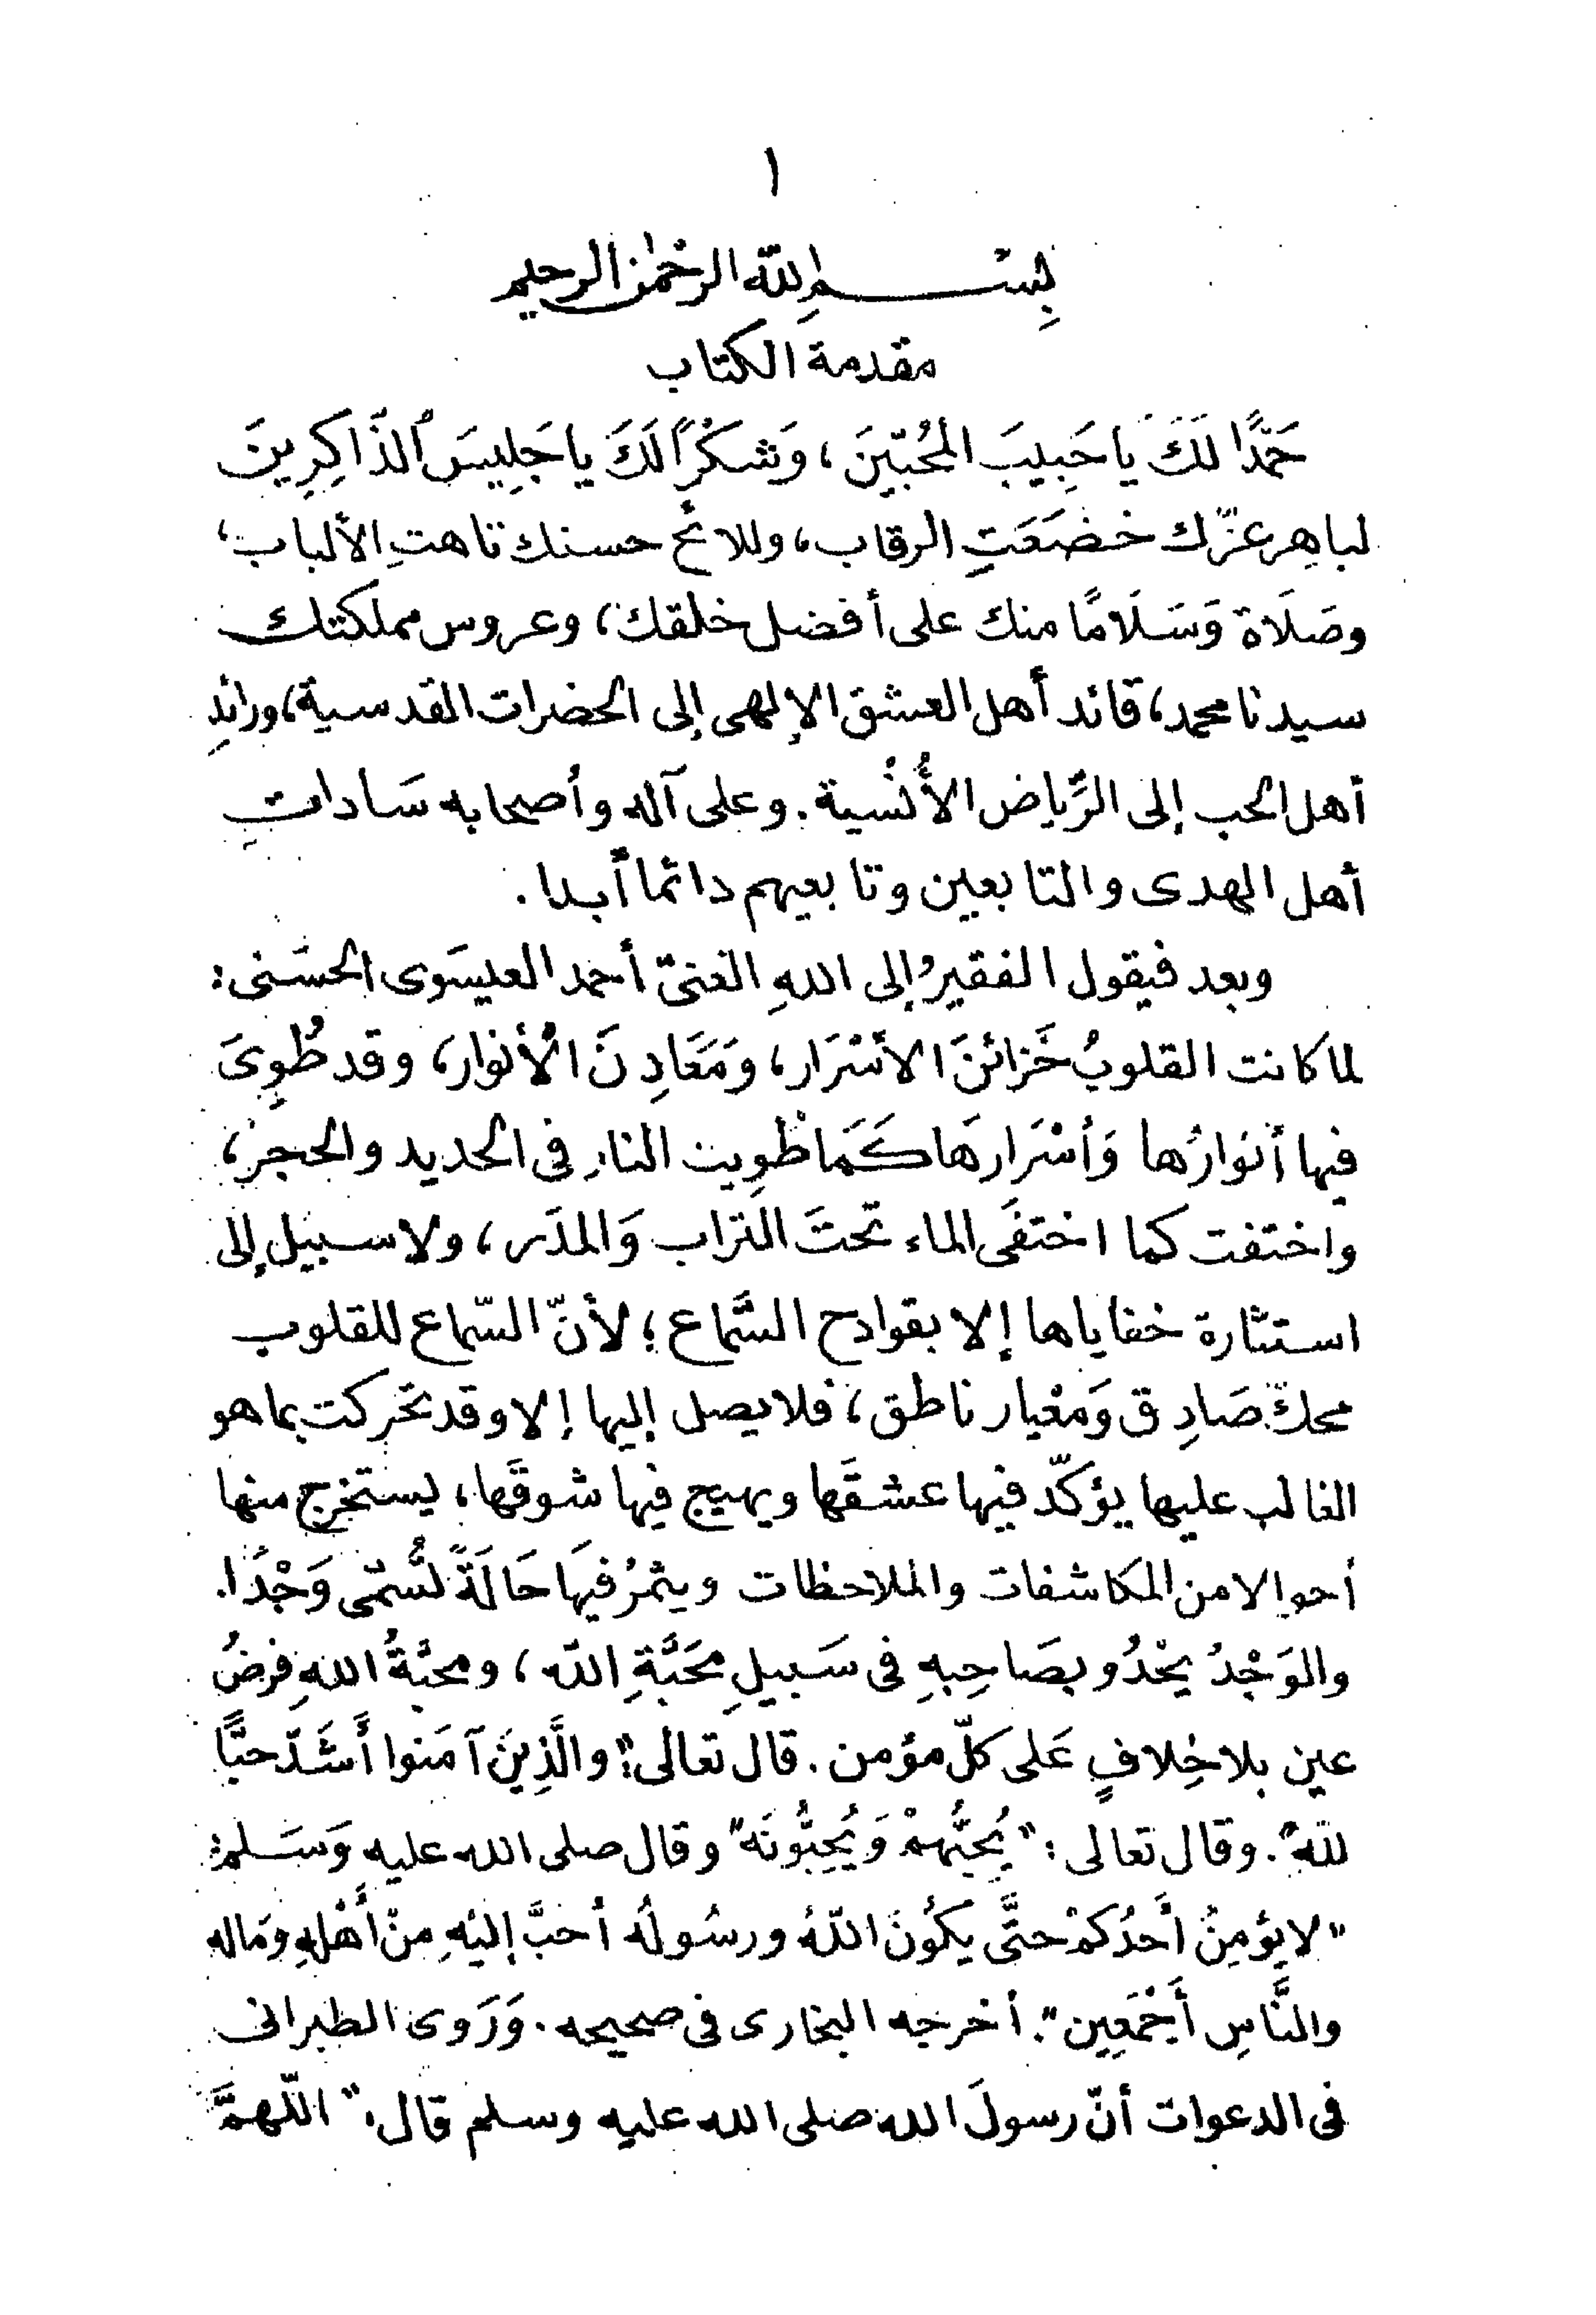 ١
بِسْمِ اللّٰه الرحمٰن الرحيم
مقدمة الكتاب
حَمْدًا لَكَ يا حَبِيبَ المُحُبّينَ، وَشكْرًا لَكَ يا جَلِيسَ ٱلذَّاكِرِينَ
لباهِرِ عزّك خضَعَتِ الرقاب، وللائح حسنك تاهتِ الألباب،
وصَلَاة وَسَلَامًا منك على أفضل خلقك، وعروس مملكتك
سيدنا محمد، قائد أهل العشق الإلهى إلى الحضرات القدسية، ورائدِ
أهل الحب إلى الرِّياض الأُنْسية. وعلى آله وأصحابه سَاداتِ
أهل الهدى والتابعين وتابعيهم دائما أبدا.
وبعد فيقول الفقيرُ إلى اللهِ الغنىّ أحمد العيسَوى الحسَنى:
لما كانت القلوبُ خَزائنَ الأسْرَار، وَمَعَادِنَ الْأنوار، وقد طُوِىَ
فيها أنوَارُها وَأسْرَارهَا كَمَا طُوِيت النار فى الحديد والحجر،
واختفت كما اختفَى الماء تحتَ التراب وَالمدَر، ولا سبيل إلى
استثارة خفاياها إلا بقوادح السَّماع؛ لأنّ السّماع للقلوب
محكّ صَادِق وَمعْيار ناطق، فلا يصل إليها إلا وقد تحَركت بما هو
الغالب عليها يؤكّد فيها عشقَها ويهيج فيها شوقَها، ليستخرج منها
أحوالا من المكاشفات والملاحظات ويثمرُ فيهَا حَالَةً تُسمّى وَجْدًا.
والوَجْدُ يحْدُو بصَاحِبهِ فى سَبيلِ محَبَّةِ اللّه، ومحبَّةُ اللهِ فرضُ
عين بلا خِلافٍ عَلى كلّ مؤمن. قال تعالى: "والَّذِينَ آمَنوا أَشَدّ حبًّا
للّه". وقال تعالى: "يُحبُّهمْ وَيُحِبُّونَه" وقال صلى الله عليه وَسَلم:
"لا يؤمِنُ أَحَدُكمْ حتَّى يكُونَ اللّهُ ورسُولُه أحَبَّ إليْهِ مِنْ أَهْلِهِ ومَاله
والنَّاسِ أَجْمَعِين". أخرجه البخارى فى صحيحه. وَرَوى الطبرانى
فى الدعوات أنّ رسولَ الله صلى الله عليه وسلم قال: "اللّهمَّ